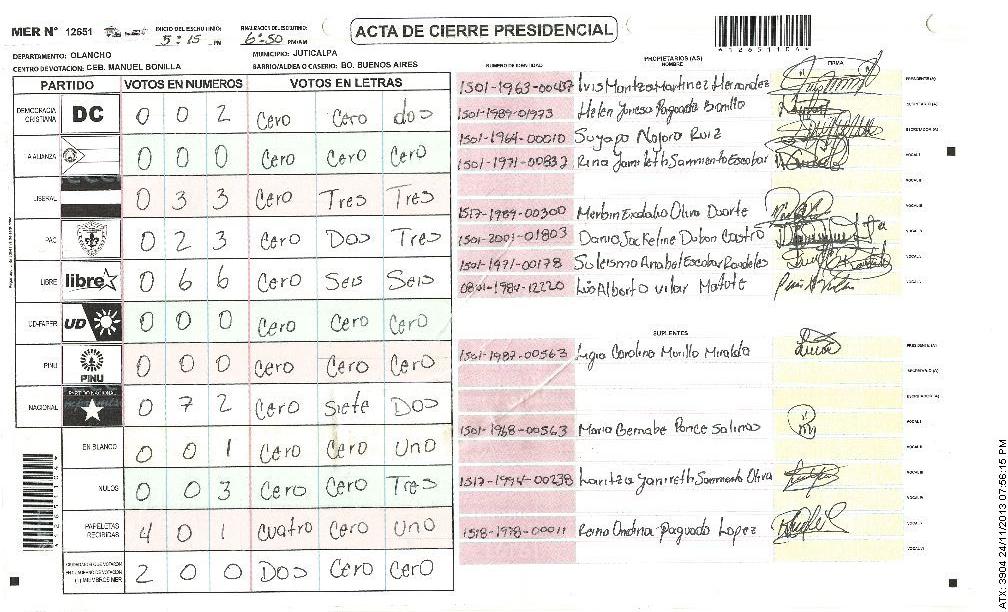 MER Nº 12651
INICIO DEL ESCRUTINIO: 5:15 PM
FINALIZACION DEL ESCRUTINIO: 6:50 PM/AM
ACTA DE CIERRE PRESIDENCIAL
DEPARTAMENTO: OLANCHO
MUNICIPIO: JUTICALPA
CENTRO DE VOTACION: CEB. MANUEL BONILLA
BARRIO/ALDEA O CASERIO: BO. BUENOS AIRES
PARTIDO VOTOS EN NUMEROS VOTOS EN LETRAS
DEMOCRACIA CRISTIANA DC 0 0 2 Cero Cero dos
LA ALIANZA 0 0 0 Cero Cero Cero
LIBERAL 0 3 3 Cero Tres Tres
PAC 0 2 3 Cero Dos Tres
LIBRE libre 0 6 6 Cero Seis Seis
UD-FAPER UD 0 0 0 Cero Cero Cero
PINU PINU 0 0 0 Cero Cero Cero
NACIONAL PARTIDO NACIONAL 0 7 2 Cero Siete Dos
EN BLANCO 0 0 1 Cero Cero Uno
NULOS 0 0 3 Cero Cero Tres
PAPELETAS RECIBIDAS 4 0 1 Cuatro Cero Uno
CIUDADANOS QUE VOTARON 2 0 0 Dos Cero Cero
NUMERO DE IDENTIDAD
PROPIETARIOS (AS)
NOMBRE
FIRMA
1501-1963-00487 Luis Martinez Hernandez PRESIDENTE (A)
1501-1989-01973 Helen Paguada Bonilla SECRETARIO (A)
1501-1964-00010 Suyapa Ruiz ESCRUTADOR (A)
1501-1971-00832 Rina Yamileth Sarmiento Escobar VOCAL I
VOCAL II
1517-1989-00300 Merbin Oliva Duarte VOCAL III
1501-2001-01803 Dania Jackeline Dubon Castro
1501-1971-00178 Anabel Escobar
0801-1984-12220 Luis Alberto Vilar
SUPLENTES
1501-1987-00563 Ligia Carolina Murillo Miralda PRESIDENTE (A)
SECRETARIO (A)
ESCRUTADOR (A)
1501-1968-00563 Maria Bernabe Ponce Salinas VOCAL I
VOCAL II
1517-1994-00238 Yanireth Sarmiento Oliva VOCAL III
1518-1978-00011 Reina Ondina Paguada Lopez
ATX: 3904 24/11/2013 07:56:15 PM